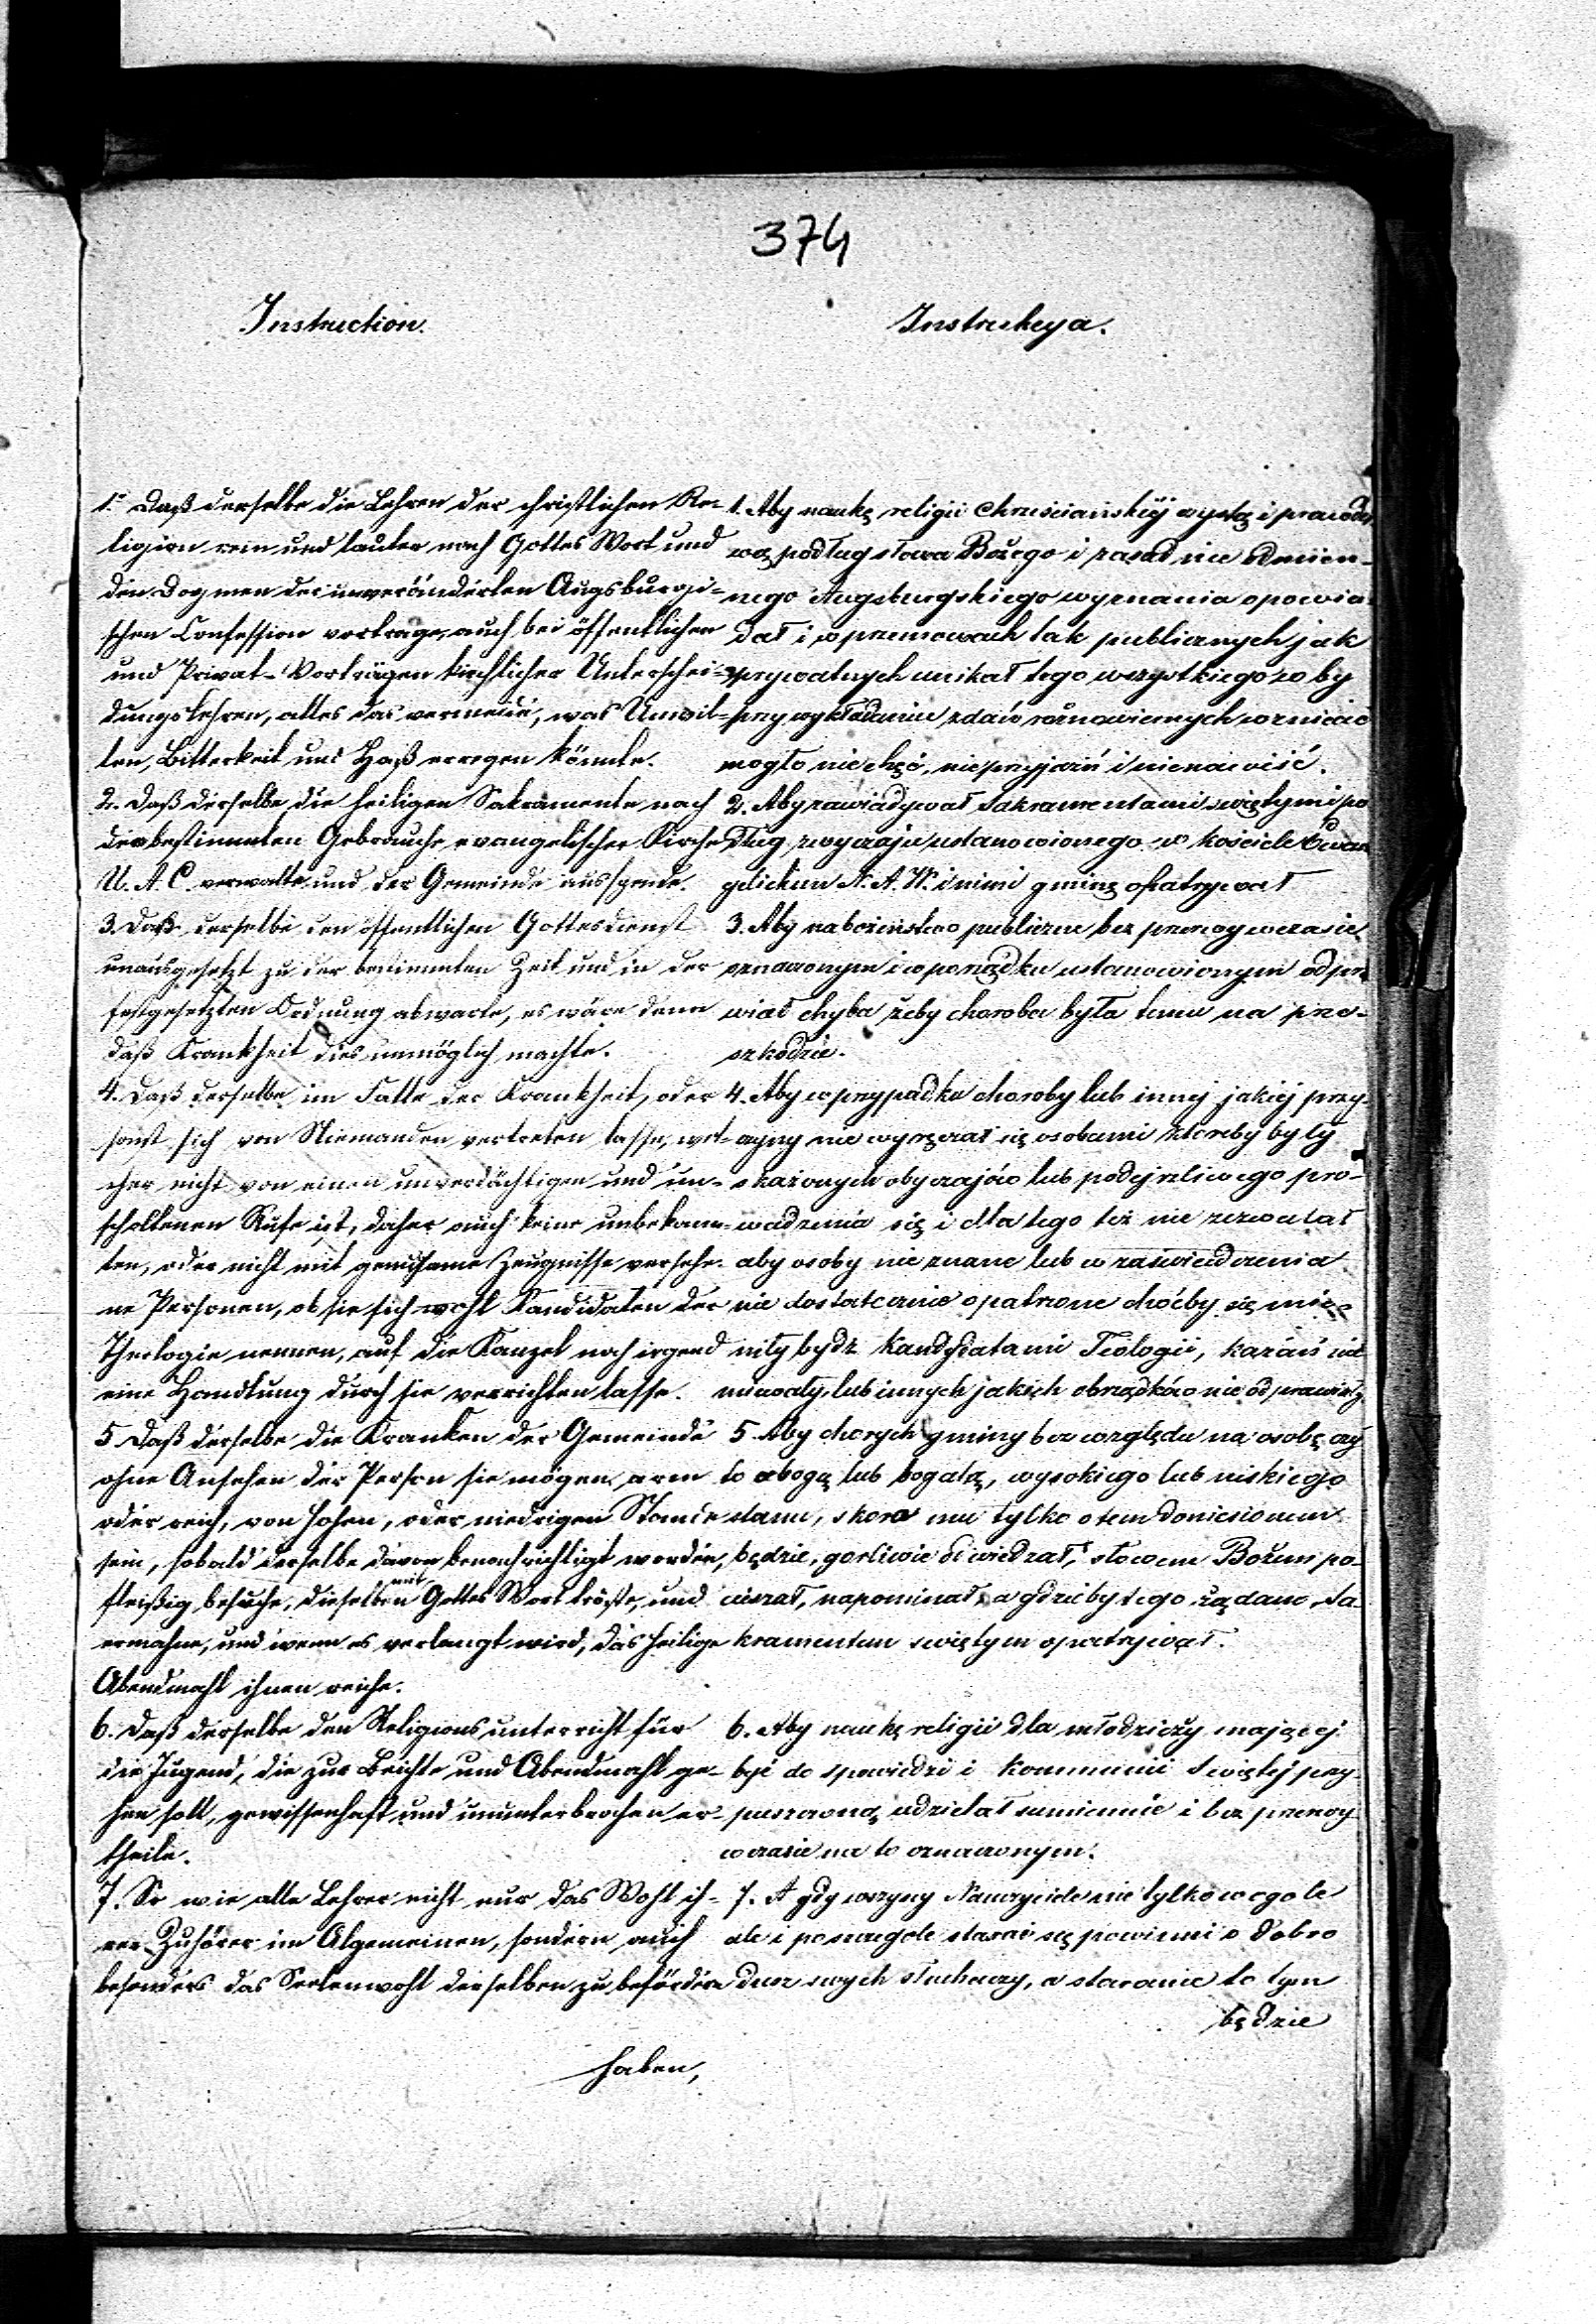 374
Instruction.
1. Daß derselbe die Lehren der christlichen Re-
ligion rein und lauter nach Gottes Wort und
den Dogmen der unveränderten Augsburgi-
schen Confession vortrage, auch bei öffentlichen
und Privat-Vorträgen kirchlicher Unterschei-
dungslehren, alles das vermeide, was Unwil-
len, Bitterkeit und Haß erregen könnte.
2. Daß derselbe die heiligen Sakramente nach
dem bestimmten Gebrauche evangelischer Kirche
U. A. C. verwalte und der Gemeinde ausspende.
3. Daß derselbe den öffentlichen Gottesdienst
unausgesetzt zu der bestimmten Zeit und in der
festgesetzten Ordnung abwarte, es wäre denn
daß Krankheit dies unmöglich machte.
4. Daß derselbe im Falle der Krankheit, oder
sonst sich von Niemanden vertreten lasse, wel-
cher nicht von einen unverdächtigen und un-
scholtenen Rufe ist, daher auch keine unbekann-
ten, oder nicht mit genugsame Zeugnisse versehe-
ne Personen, ob sie sich wohl Kandidaten der
Theologie nennen, auf die Kanzel noch irgend
eine Handlung durch sie verrichten lasse.
5 Daß derselbe die Kranken der Gemeinde
ohne Ansehen der Person sie mögen arm
oder reich, von hohen, oder niedrigen Stande
sein, sobald derselbe davon benachrichtigt worden,
fleißig besuche, dieselben mit Gottes Wort tröste, und
ermahne, und wenn es verlangt wird, das heilige
Abendmahl ihnen reiche.
6. Daß derselbe den Religionsunterricht für
die Jugend, die zur Beichte und Abendmahl ge-
hen soll, gewissenhaft und ununterbrochen er-
theile.
7. So wie alle Lehrer nicht nur das Wohl ih-
rer Zuhörer im Algemeinen, sondern auch
besonders das Seelenwohl derselben zu befördern
haben,
Instrukcya.
1. Aby naukę religii Chrześciańskiéj czystą i prawdzi
wą podług słowa Bożego i zasad nie odmien-
nego Augsburgskiego wyznania opowia
dał i w przemowach tak publicznych jak
prywatnych unikał tego wszystkiego co by
przy wykładaniu zdań różnowiernych wzniecić
mogło niechęć, nieprzyjaźń i nienawiść.
2. Aby zawiadywał Sakramentami świętymi po
dług zwyczaju ustanowionego w kościele Ewan
gelickim N. A. W. i nimi gminę opatrywał
3. Aby nabożeństwo publiczne bez przerwy w czasie
oznaczonym i w porządku ustanowionym odpra
wiał chyba żeby choroba była temu na prze-
szkodzie.
4. Aby w przypadku choroby lub innej jakiéj przy-
czyny nie wyręczał się osobami któreby były
skażonych obyczajów lub podejrzliwego pro-
wadzenia się i dla tego też nie zezwalał
aby osoby nie znane lub w zaświadczenia
nie dostatecznie opatrzone choćby się mie-
niły bydź Kandydatami Teologii, kazań nie
miewały lub innych jakich obrządków nie odprawiały
5 Aby chorych gminy bez względu na osobę czy
to ubogą lub bogatą, wysokiego lub niskiego
stanu, skoro mu tylko o tem doniesionem
będzie, gorliwie odwiedzał, słowem Bożem po-
cieszał, napominał, a gdzieby tego żądano, Sa
kramentem świętym opatrywał.
6. Aby naukę religii dla młodzieży mającej
być do spowiedzi i Kommunii Świętej przy-
puszczoną udzielał sumiennie i bez przerwy
w czasie na to oznaczonym.
7. A gdy wszyscy Nauczyciele nie tylko w ogóle
ale i poszczególe starać się powinni o dobro
dusz swych słuchaczy, a staranie to tym
będzie